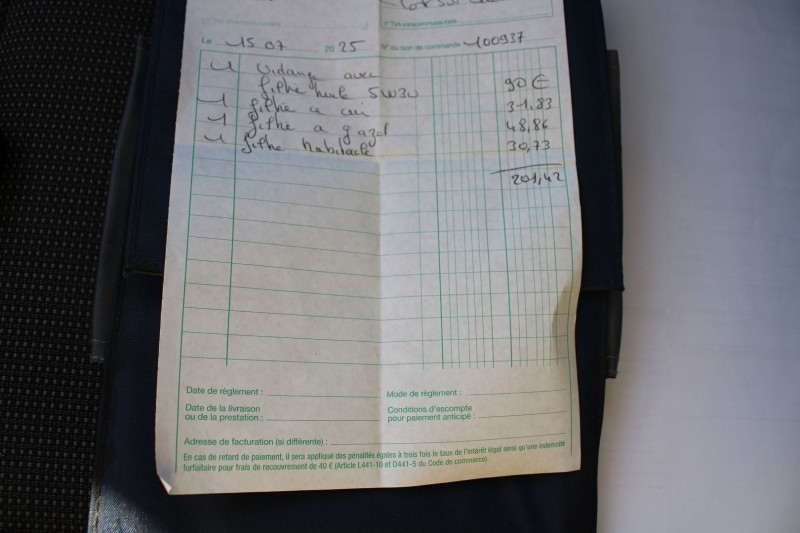 N° TVA intracommunautaire
Le 15 07 2025 N° du bon de commande 100937
1 Vidange avec
filtre huile 5W30 90 €
1 filtre a air 31.83
1 filtre a gazol 48,86
1 filtre habitacle 30,73
201,42
Date de règlement : Mode de règlement :
Date de la livraison
ou de la prestation :
Conditions d'escompte
pour paiement anticipé :
Adresse de facturation (si différente) :
En cas de retard de paiement, il sera appliqué des pénalités égales à trois fois le taux de l'intérêt légal ainsi qu'une indemnité
forfaitaire pour frais de recouvrement de 40 € (Article L441-10 et D441-5 du Code de commerce).